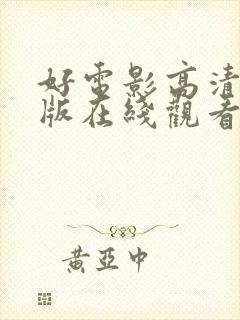 好電影高清
版在綫觀看
黃亞中